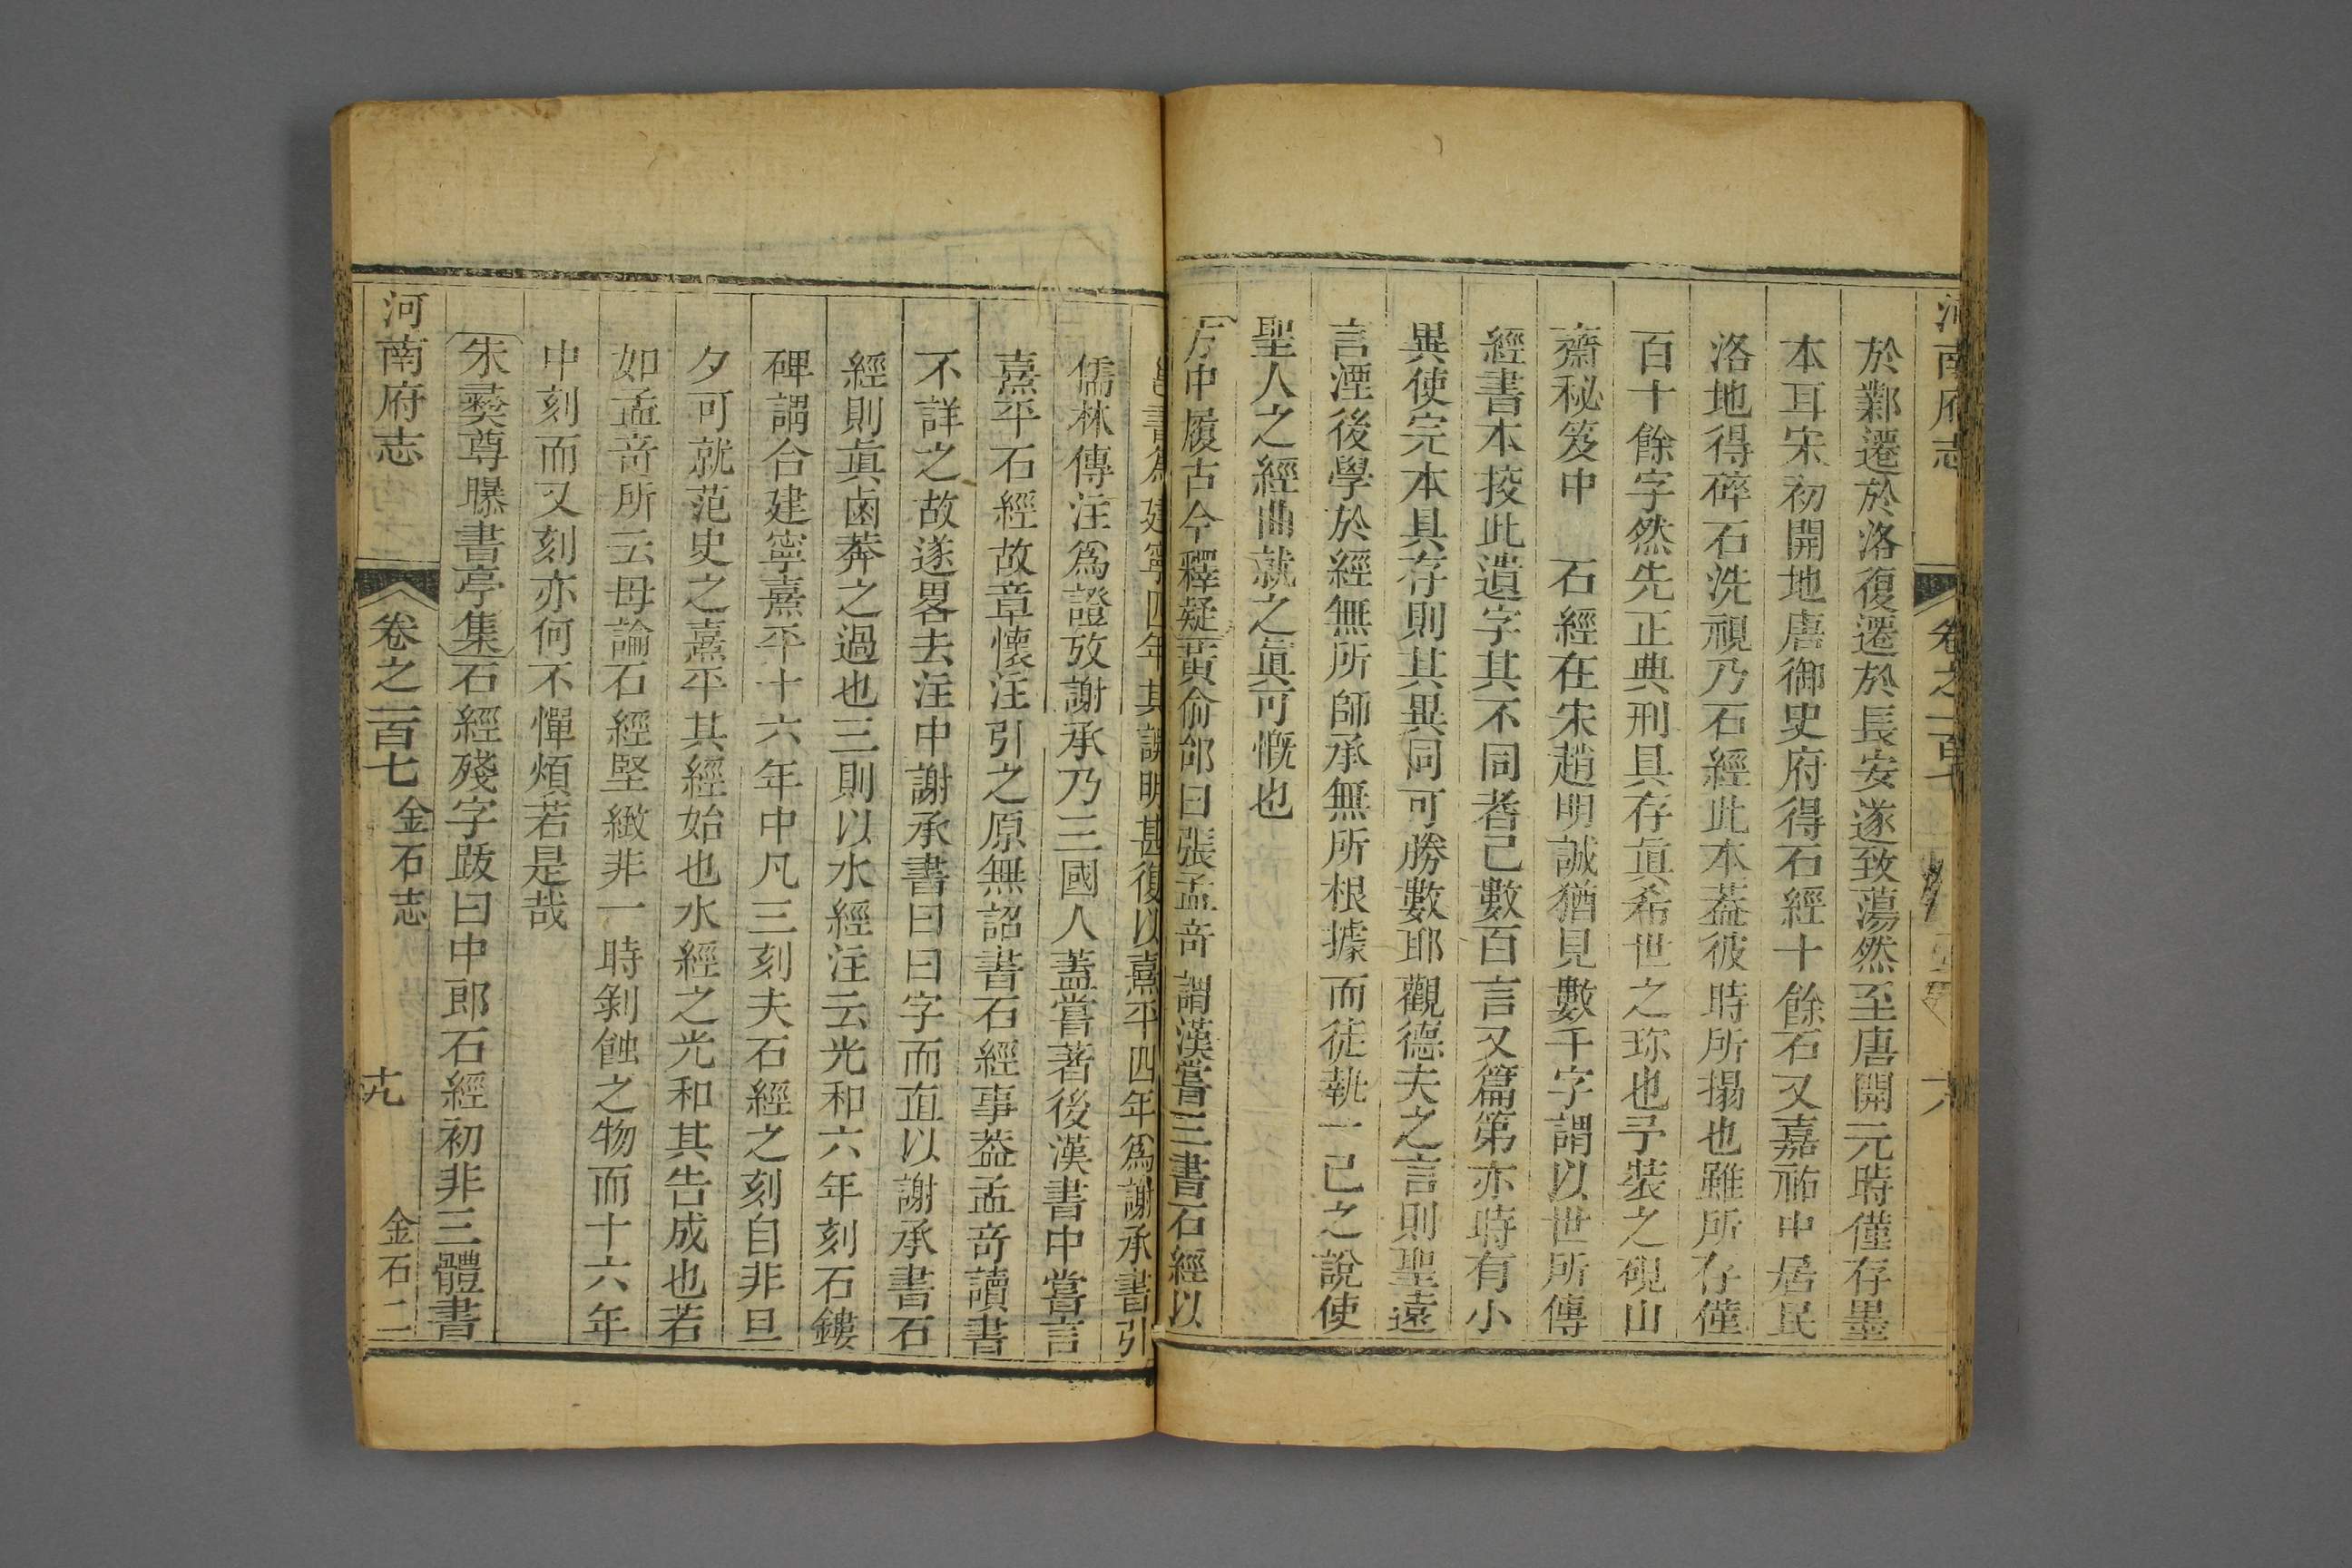 河南府志 卷之一百七
於鄴遷於洛復遷於長安遂致蕩然至唐開元時僅存墨
本耳宋初開地唐御史府得石經十餘石又嘉祐中居民
洛地得碎石洗視乃石經此本葢彼時所搨也雖所存僅
百十餘字然先正典刑具存眞希世之珎也予裝之硯山
齋秘笈中　石經在宋趙明誠猶見數千字謂以世所傳
經書本挍此遺字其不同者已數百言又篇第亦時有小
異使完本具存則其異同可勝數耶觀德夫之言則聖遠
言湮後學於經無所師承無所根據而徒執一己之說使
聖人之經曲就之眞可慨也
方中履古今釋疑黃俞邰曰張孟奇謂漢嘗三書石經以
書爲建寧四年其說明甚復以熹平四年爲謝承書引
儒林傳注爲證攷謝承乃三國人蓋嘗著後漢書中嘗言
熹平石經故章懷注引之原無詔書石經事葢孟奇讀書
不詳之故遂畧去注中謝承書曰曰字而直以謝承書石
經則眞鹵莽之過也三則以水經注云光和六年刻石鏤
碑謂合建寧熹平十六年中凡三刻夫石經之刻自非旦
夕可就范史之熹平其經始也水經之光和其告成也若
如孟奇所云毋論石經堅緻非一時剝蝕之物而十六年
中刻而又刻亦何不憚煩若是哉
朱彛尊曝書亭集石經殘字䟦曰中郎石經初非三體書
河南府志 卷之一百七 金石志 十九 金石二